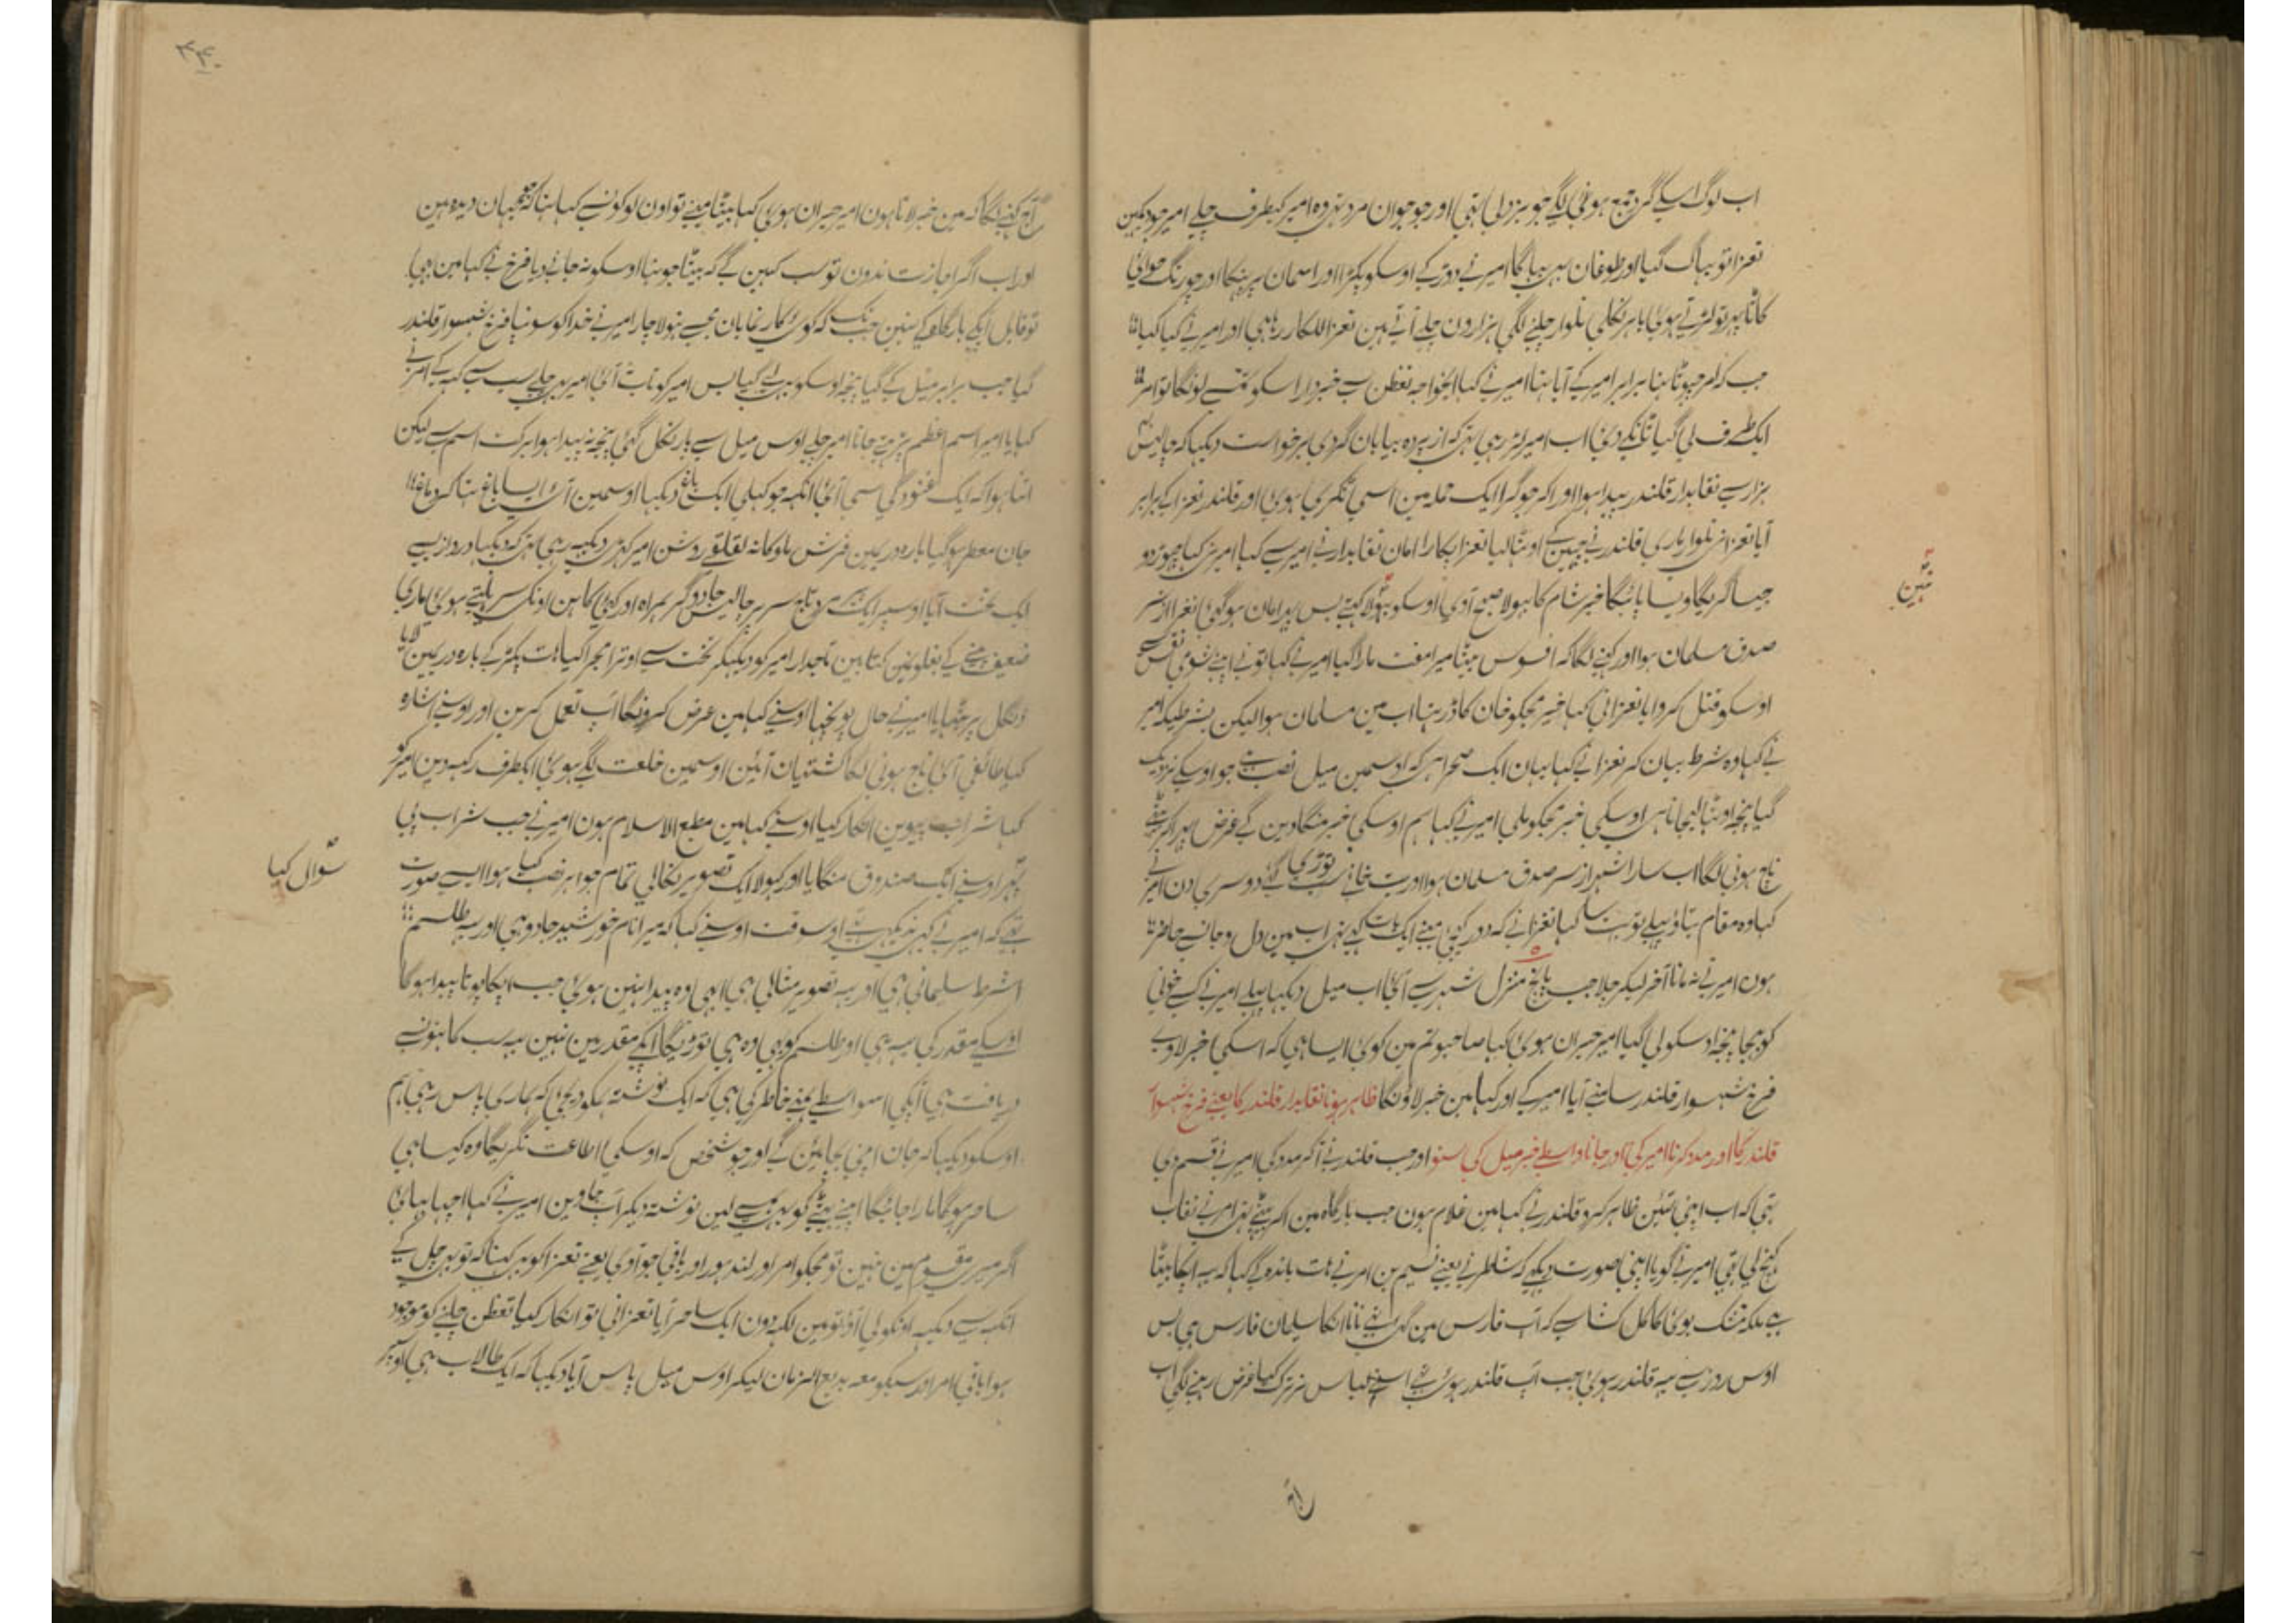 اب لوگ اسکے گرد جمع ہونی لگے جو بزدلی تہی اور جو جوان مرد تہی وہ امیر کیطرف چلے امیر جو دیکہین
تعزا تو بہاگ گیا اور طوفان بہی بہاگا امیر نے دوڑ کے اوسکو پکڑا اور اسمان پر پہینکا اور چورنگ ہوائی
کاٹا پہر تو لڑتے ہوئی باہر نکلی تلوار چلنے لگی ہزارون چلے آتے ہین تعزا للکار رہا ہی اور امیر نے کیا کیا
جب کہ امر چہوٹا تہا برابر امیر کے آیا تہا امیر نے کہا ای خواجہ تغطن سے خبردار اسکو تمسے لونگا تو امر
ایک طرف لی گیا تانگے دی اب امیر لڑ رہی تہی کہ از پردہ بیابان گردی برخواست دیکہا کہ چالیس
ہزار سے نقابدار قلندر پیدا ہوا اور اکر جو گرا ایک حملہ مین اسمی تنگری ہوئی اور قلندر تعزا کے برابر
آیا تعزا نے تلوار ماری قلندر نے چہین کے اوٹہا لیا تعزا پکارا امان نقابدار نے امیر سے کہا امیر نے کہا چہوڑ دو
جیسا کریگا ویسا پائیگا خیر شام کا بہولا صبح آوی اوسکو بہولا کہتے بس پہر امان ہو گئی تعزا از سر
صدق مسلمان ہوا اور کہنے لگا کہ افسوس بیٹا میرا مفت مارا گیا امیر نے کہا تونے اپنے شومی نفس سے
اوسکو قتل کروایا تعزا نی کہا خیر مجکو خان کا ڈر تہا اب مین مسلمان ہوا لیکن بشرطیکہ امیر
نے کہا وہ شرط بیان کر تعزا نے کہا یہان ایک صحرا ہی کہ اوسمین میل نصب ہے جو اوسکے نزدیک
گیا پنجہ اوٹہا لیجاتا ہی اوسکی خبر مجکو ملی امیر نے کہا ہم اوسکی خبر منگا دین گے غرض پہر اکر بیٹہے
ناچ ہونی لگا اب سارا شہر از سر صدق مسلمان ہوا اور بت خانے سب توڑی گئے دوسری دن امیر نے
کہا وہ مقام بتاؤ پہلے تو بتا کہا تعزا نے کہ دور کہین مینے ایک بات کہی تہی اب مین دل و جانسے حاضر
ہون امیر نے نہ مانا آخر لیکر چلا جب پانچ منزل شہر سے آئی اب میل دیکہا پہلے امیر نے کسے خونی
کو بہیجا پنجہ اوسکو لی گیا امیر حیران ہوئی کہا صاحبو تم مین کوئی ایسا ہی کہ اسکی خبر لاوے
فرخ شہسوار قلندر سامنے آیا امیر کے اور کہا مین خبر لاؤنگا ظاہر ہونا نقابدار قلندر کا یعنے فرخ شہسوار
قلندر کا اور مدد کرنا امیر کی اور جانا واسطے خبر میل کی سنو اور جب قلندر نے آکر مدد کی امیر نے قسم دی
تہی کہ اب اپنی تئین ظاہر کرو قلندر نے کہا مین غلام ہون جب بارگاہ مین اکر بیٹہے تہی امر نے نقاب
کہنچ لی تہی امیر نے گویا اپنی صورت دیکہی کہ شاطر نے یعنے نسیم بن امر نے ہات باندہ کے کہا کہ یہ اپکا بیٹا
ہے ملکہ تنگ بوی کا کل کشا سے کہ آپ فارس مین گئے تہے نانا انکا سلمان فارس ہی بس
اوس روز سے یہ قلندر ہوئی جب آپ قلندر ہوئے تہے اسنے لباس نہ ترک کیا غرض رہنے لگی اب
نہین
اج
۳۴۰
آج کہنے لگا کہ مین خبر لاتا ہون امیر حیران ہوئی کہا بیٹا مینے تو اون لوگونسے کہا تہا کہ جو جہان دیدہ ہین
اور اب اگر اجازت ندون تو سب کہین گے کہ بیٹا جو تہا اوسکو نہ جانے دیا فرخ نے کہا مین بہی
تو قابل اپکی بارگاہ کے نہین جب تک کہ کوئی کار نمایان مجہسے نہو لاچار امیر نے خدا کو سونپا فرخ شہسوار قلندر
گیا جب برابر میل کے گیا پنجہ اوسکو بہی لے گیا بس امیر کو تاب آئی امیر بہی چلے سب سے کہہ کے امر نے
کہا یا امیر اسم اعظم پڑہتے جانا امیر چلے اوس میل سے پار نکل گئی پنجہ نہ پیدا ہوا برکت اسم سے لیکن
اتنا ہوا کہ ایک غنودگی سی آئی آنکہہ جو کہلی ایک باغ دیکہا اوسمین آئے ایسا باغ تہا کہ دماغ
جان معطر ہو گیا بارہ دریمین فرش ملوکانہ لقلقے روشن امیر کہڑے دیکہہ رہی تہی کہ دیکہا دروازہ سے
ایک تخت آیا اوسپر ایک پیر مرد تاج سر پر چالیس جادوگر ہمراہ اور کئی کاہن اونکے سر ہلتے ہوئی ماری
ضعیفی کے بغلونمین کتابین تاجدار امیر کو دیکہکر تخت سے اوترا مجرا کیا ہات پکڑ کے بارہ دریمین لایا
دنگل پر بٹہایا امیر نے حال پوچہا اوسنے کہا مین عرض کرونگا آپ تعمل کرین اور اوسنے اشارہ
کیا طائفے آئی ناچ ہونی لگا کشتیان آئین اوسمین خلعت لگے ہوئی ایکطرف رکہہ دین امیر کو
کہا شراب پیوین انکار کیا اوسنے کہا مین مطیع الاسلام ہون امیر نے جب شراب پی
پہر اوسنے ایک صندوق منگایا اور کہولا ایک تصویر نکالی تمام جواہر نصب کیا ہوا ایسے صورت
تہی کہ امیر نے کہین ندیکہی تہی اوسوقت اوسنے کہا کہ میرا نام خورشید جادو ہی اور یہ طلسم
اشرط سلیمانی ہی اور یہ تصویر مثالی ہی ابہی وہ پیدا نہین ہوئی جب اپکا پوتا پیدا ہوگا
اوسکے مقدر کی یہ ہی اور طلسم کو بہی وہ ہی توڑیگا اپکے مقدر مین نہین یہ سب کاہنونسے
دریافت ہی آپکی اسواسطے مینے خاطر کی ہی کہ ایک نوشتہ ہمکو دیجئے کہ ہماری پاس رہی ہم
اوسکو دیکہا کہ جان اپنی بچا لین گے اور جو شخص کہ اوسکی اطاعت نکریگا وہ کیسا ہی
ساحر ہوگا مارا جائیگا اپنے بیٹے کو بہی ہمسے لین نوشتہ دیکر آپ جاوین امیر نے کہا اچہا بہائی
اگر میرے مقسوم مین نہین تو مجکو امر اور لندہور اور باقی جو آوی یعنے تعزا کو بہی کہنا کہ تو بہی چل کے
انکہہ سے دیکہہ اونکو لی آؤ تو مین لکہہ دون ایک ساحر آیا تعزا نی تو انکار کیا تغطن چلنے کو موجود
ہوا باقی امر اور سبکو معہ بدیع الزمان لیکر اوس میل پاس آیا دیکہا کہ ایک تالاب ہی اوسپر
سوال کیا